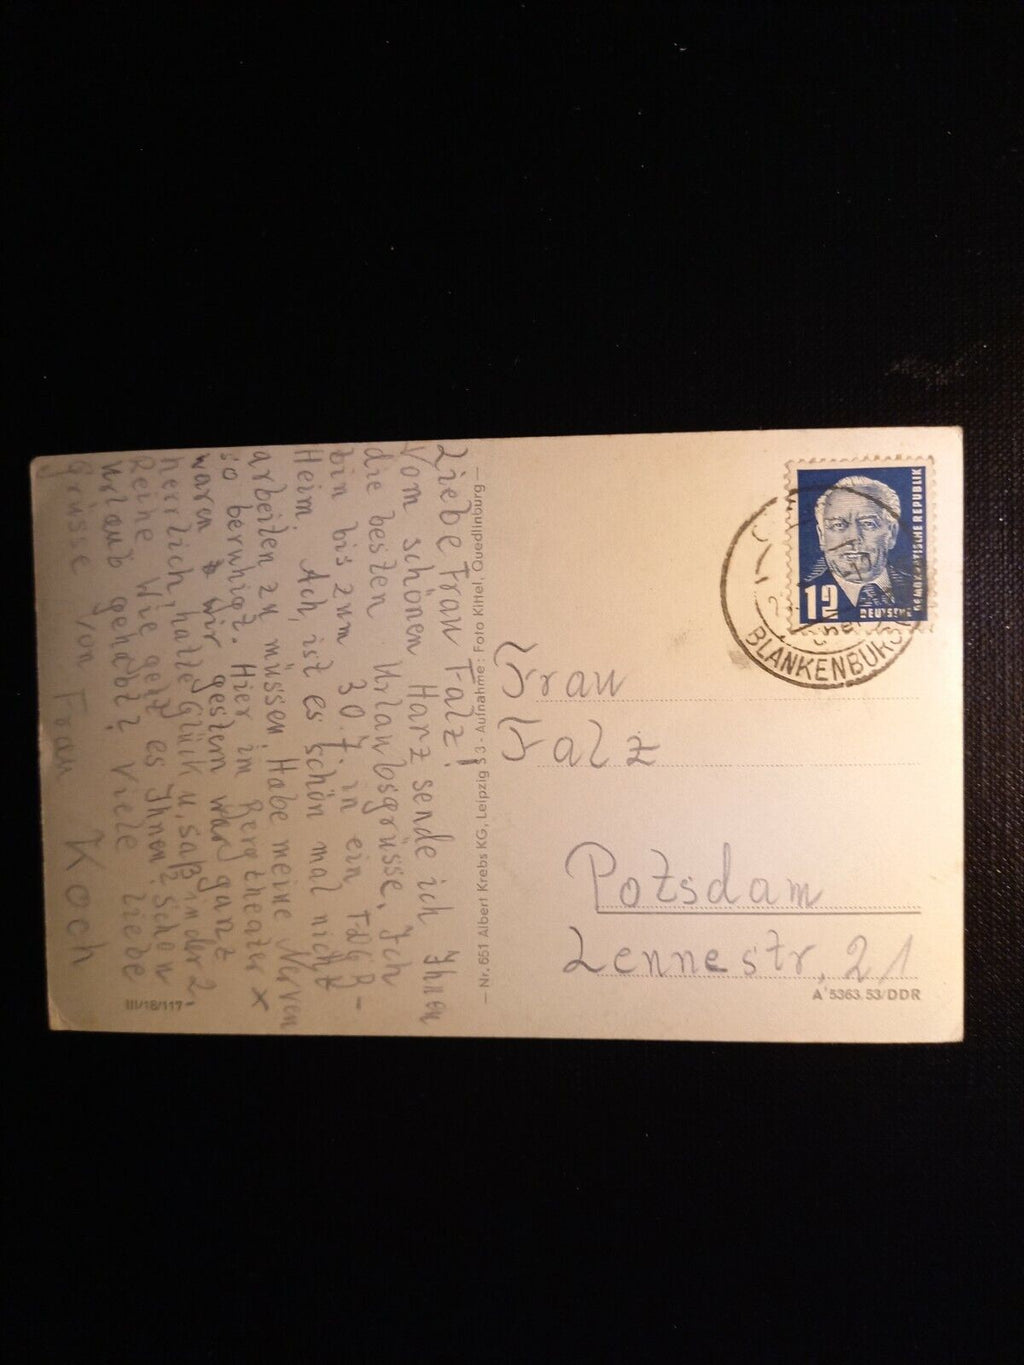 Liebe Frau Falz!
Vom schönen Harz sende ich Ihnen
die besten Urlaubsgrüsse. Ich
bin bis zum 30.7. in ein, FDGB-
Heim. Ach, ist es schön mal nicht
arbeiten zu müssen. Habe meine Nerven
so beruhigt. Hier im Bergtheater x
waren wir gestern war ganz
herrlich hatte Glück u. saß in der 2.
Reihe. Wie geht es Ihnen? Schon
Urlaub gehabt? Viele liebe
Grüsse von Frau Koch
III/18/117
— Nr. 651 Albert Krebs KG, Leipzig S 3 - Aufnahme: Foto Kittel, Quedlinburg —
12
DEUTSCHE
DEMOKRATISCHE REPUBLIK
BLANKENBURG
Frau
Falz
Potsdam
Lennestr. 21
A 5363/53/DDR